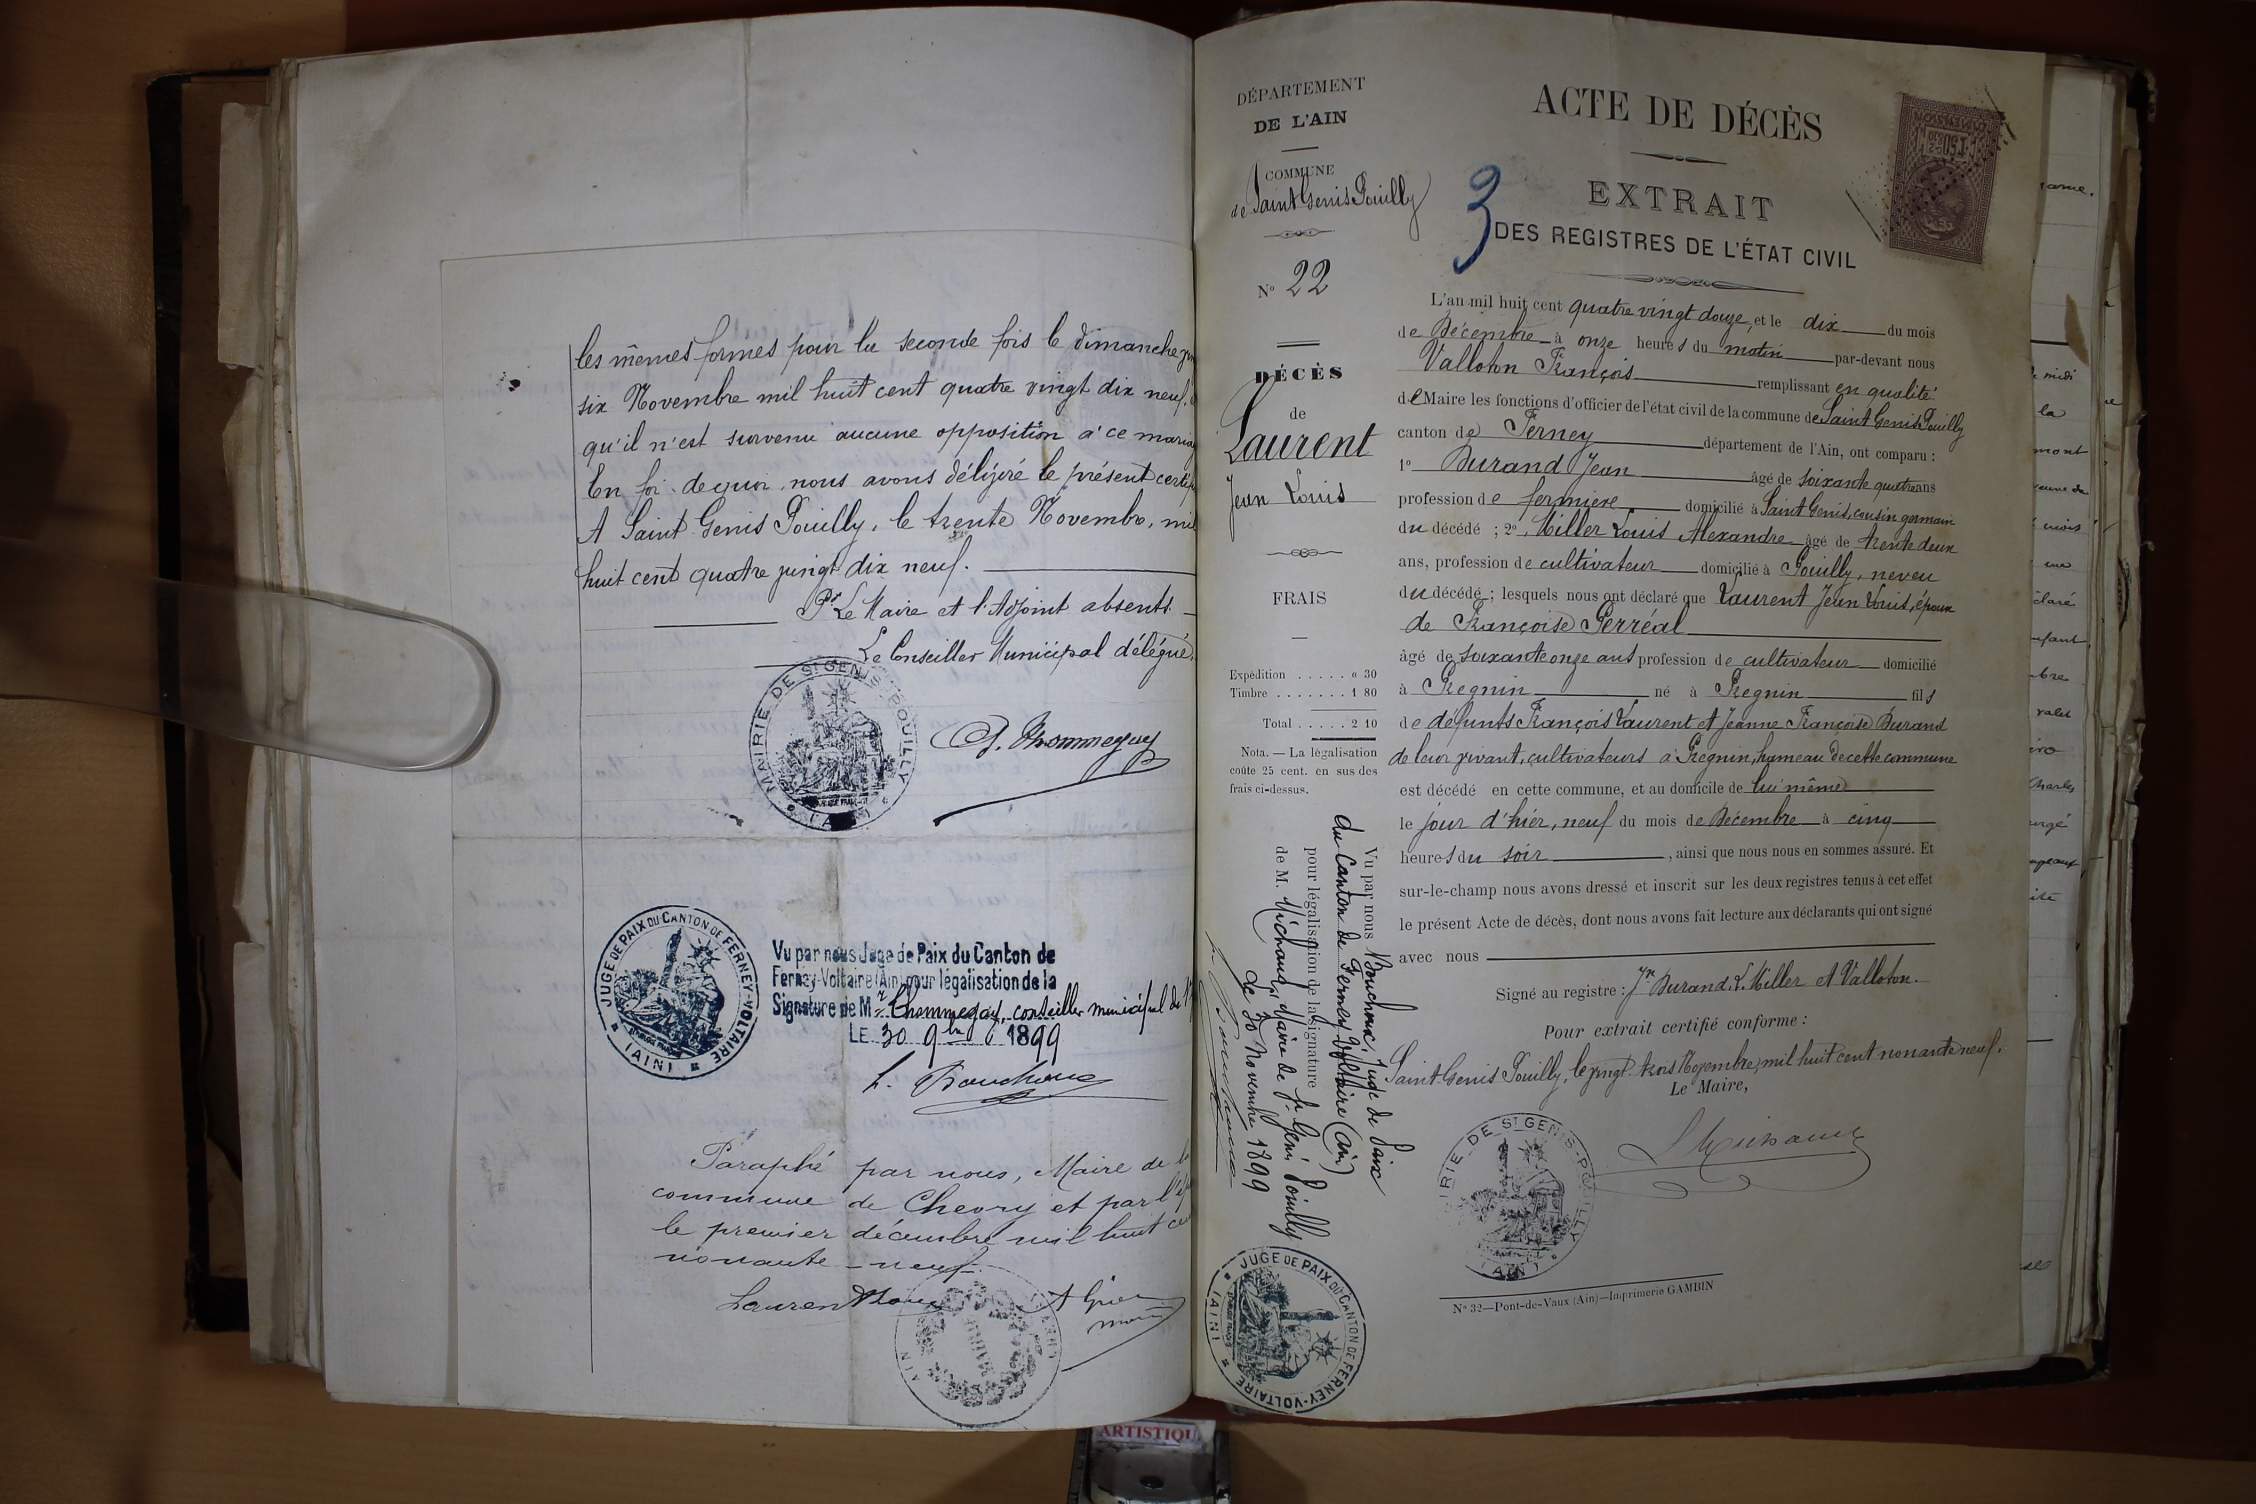 les mêmes formes pour la seconde fois le dimanche
six Novembre mil huit cent quatre vingt dix neuf.
qu'il n'est survenu aucune opposition à ce
En foi de quoi, nous avons délivré le présent
A Saint Genis Pouilly, le trente Novembre, mil
huit cent quatre vingt dix neuf.
Pr Le Maire et l'Adjoint absents
Le Conseiller Municipal délégué,
MAIRIE DE ST GENIS-POUILLY
(AIN)
JUGE DE PAIX DU CANTON DE FERNEY-VOLTAIRE
(AIN)
Vu par nous Juge de Paix du Canton de
Ferney-Voltaire (Ain) pour légalisation de la
Signature de Mr Thommegay, conseiller municipal de
LE 30 9bre 1899
L. Bouchoux
Paraphé par nous, Maire de la
commune de Chevry et par
le premier décembre mil huit
nonante-neuf.
MAIRIE
AIN
DÉPARTEMENT
DE L'AIN
COMMUNE
de Saint Genis Pouilly
No 22
DÉCÈS
de
Laurent
Jean Louis
FRAIS
Expédition ..... « 30
Timbre ....... 1 80
Total ..... 2 10
Nota. — La légalisation
coûte 25 cent. en sus des
frais ci-dessus.
Vu par nous Bouchoux, Juge de Paix
du Canton de Ferney-Voltaire (Ain)
pour légalisation de la signature
de M. Michaud, Maire de St Genis Pouilly
le 30 Novembre 1899
L. Bouchoux
JUGE DE PAIX DU CANTON DE FERNEY-VOLTAIRE
(AIN)
ACTE DE DÉCÈS
EXTRAIT
3
DES REGISTRES DE L'ÉTAT CIVIL
L'an mil huit cent quatre vingt douze, et le dix du mois
de Décembre à onze heures du matin par-devant nous
Valloton François remplissant en qualité
de Maire les fonctions d'officier de l'état civil de la commune de Saint Genis Pouilly
canton de Ferney département de l'Ain, ont comparu :
1o Durand Jean âgé de soixante quatre ans
profession de fermière domicilié à Saint Genis, cousin germain
du décédé ; 2o, Miller Louis Alexandre âgé de trente deux
ans, profession de cultivateur domicilié à Pouilly, neveu
du décédé ; lesquels nous ont déclaré que Laurent Jean Louis, époux
de Françoise Perréal
âgé de soixante onze ans profession de cultivateur domicilié
à Pregnin né à Pregnin fils
de défunts François Laurent et Jeanne Françoise Durand
de leur vivant, cultivateurs à Pregnin, hameau de cette commune
est décédé en cette commune, et au domicile de lui même
le jour d'hier, neuf du mois de Décembre à cinq
heures du soir , ainsi que nous nous en sommes assuré. Et
sur-le-champ nous avons dressé et inscrit sur les deux registres tenus à cet effet
le présent Acte de décès, dont nous avons fait lecture aux déclarants qui ont signé
avec nous
Signé au registre : Jn Durand, L. Miller et Valloton.
Pour extrait certifié conforme :
Saint Genis Pouilly, le vingt trois Novembre, mil huit cent nonante neuf.
Le Maire,
MAIRIE DE ST GENIS-POUILLY
(AIN)
No 32—Pont-de-Vaux (Ain)—Imprimerie GAMBIN
midi
la
mont
claré
valet
Charles
ARTISTIQU